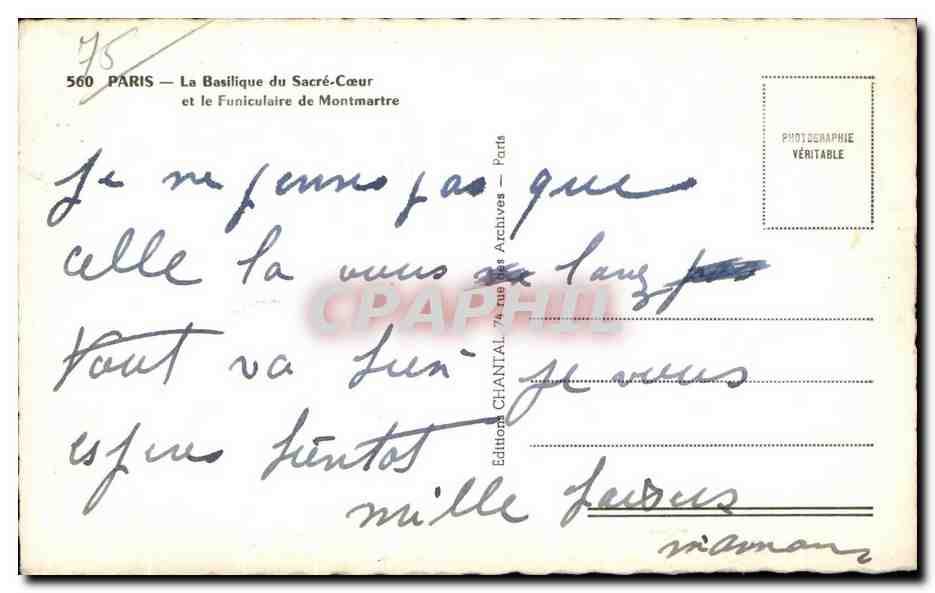 75
560 PARIS — La Basilique du Sacré-Cœur
et le Funiculaire de Montmartre
PHOTOGRAPHIE
VÉRITABLE
Editions CHANTAL, 74 rue des Archives — Paris
Je ne penses pas que
celle la vous l'avez
Tout va bien je vous
espères bientot
mille baisers
maman
CPAPHIL